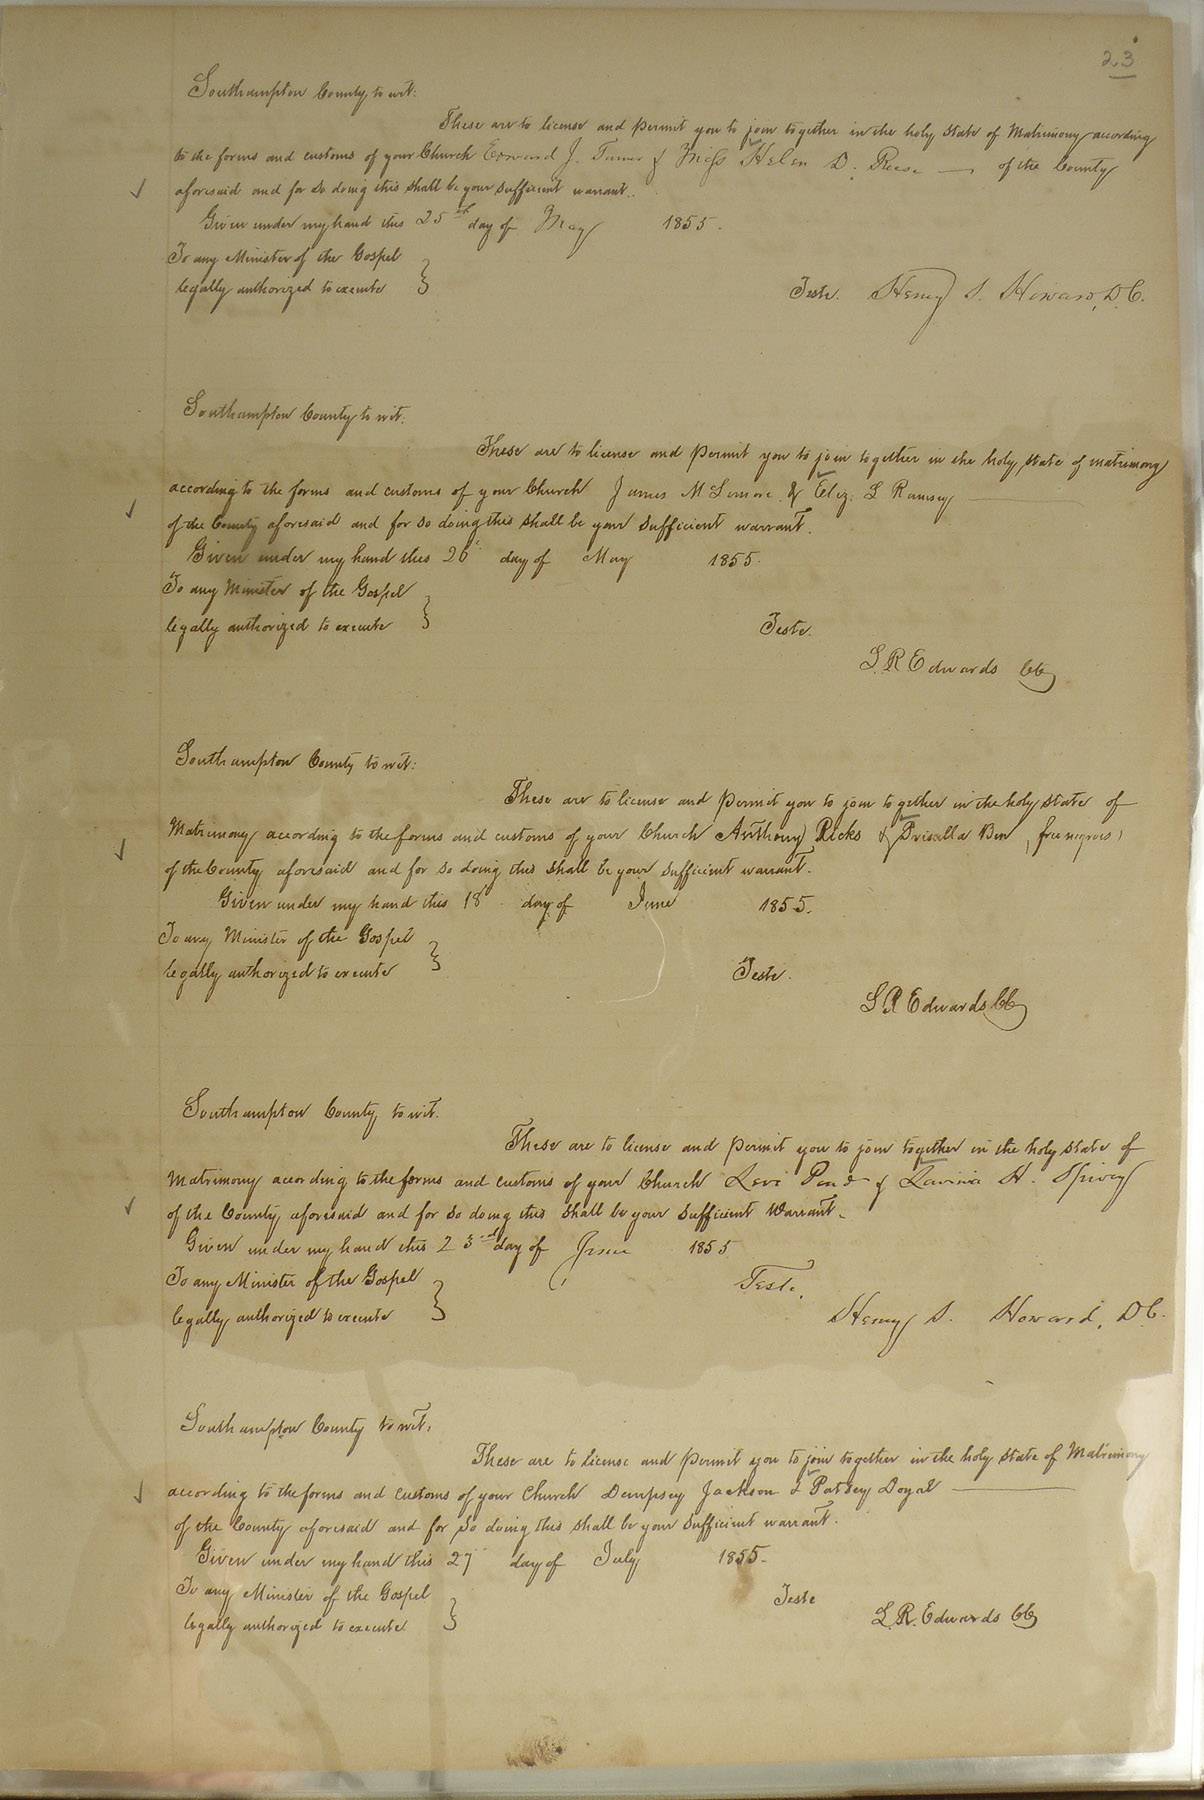 23
Southampton County, to wit:
These are to license and permit you to join together in the holy state of Matrimony according
to the forms and customs of your Church Edward J. Turner & Miss Helen D. Reese — of the County
aforesaid and for so doing this shall be your sufficient warrant.
Given under my hand this 25th day of May 1855.
To any Minister of the Gospel
legally authorized to execute }
Teste. Henry S. Howard, D.C.
Southampton County to wit:
These are to license and permit you to join together in the holy state of matrimony
according to the forms and customs of your Church James McLemore & Eliz. L Ramsey
of the County aforesaid and for so doing this shall be your sufficient warrant.
Given under my hand this 26 day of May 1855.
To any Minister of the Gospel
legally authorized to execute }
Teste.
L R Edwards CC
Southampton County to wit:
These are to license and permit you to join together in the holy state of
Matrimony according to the forms and customs of your Church Anthony Ricks & Prisalla (free negroes)
of the County aforesaid and for so doing this shall be your sufficient warrant.
Given under my hand this 18 day of June 1855.
To any Minister of the Gospel
legally authorized to execute }
Teste.
L R Edwards CC
Southampton County to wit.
These are to license and permit you to join together in the holy state of
Matrimony according to the forms and customs of your Church Levi Pond & Lavinia H. Spivey
of the County aforesaid and for so doing this shall be your sufficient Warrant.
Given under my hand this 23rd day of June 1855
To any Minister of the Gospel
legally authorized to execute }
Teste.
Henry S. Howard, D.C.
Southampton County to wit:
These are to license and permit you to join together in the holy state of Matrimony
according to the forms and customs of your Church Dempsey Jackson & Patsey Doyal
of the County aforesaid and for so doing this shall be your sufficient warrant.
Given under my hand this 27 day of July 1855.
To any Minister of the Gospel
legally authorized to execute }
Teste
L. R. Edwards CC